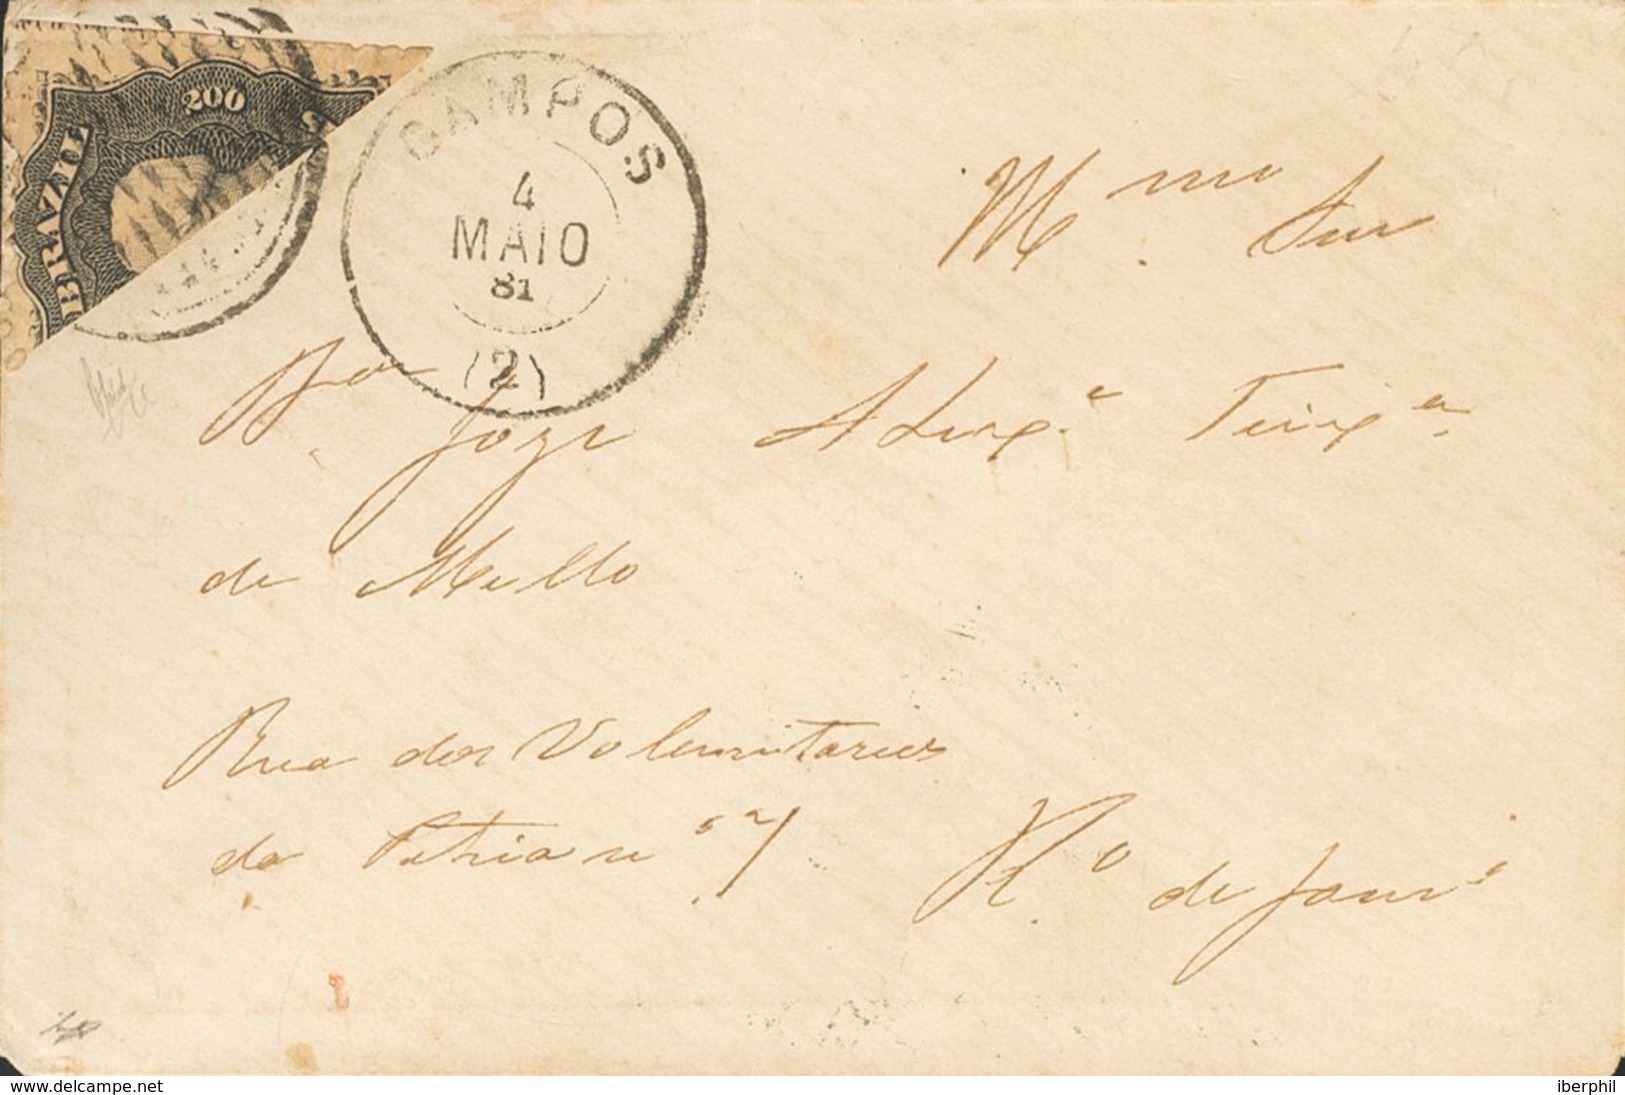 200
BRAZIL
CAMPOS
4
MAIO
81
(2)
M.mo Snr
Joze Teixa
de Mello
Rua dos Voluntareos
da Patria n 57
R.o de Janr.o
www.delcampe.net
iberphil